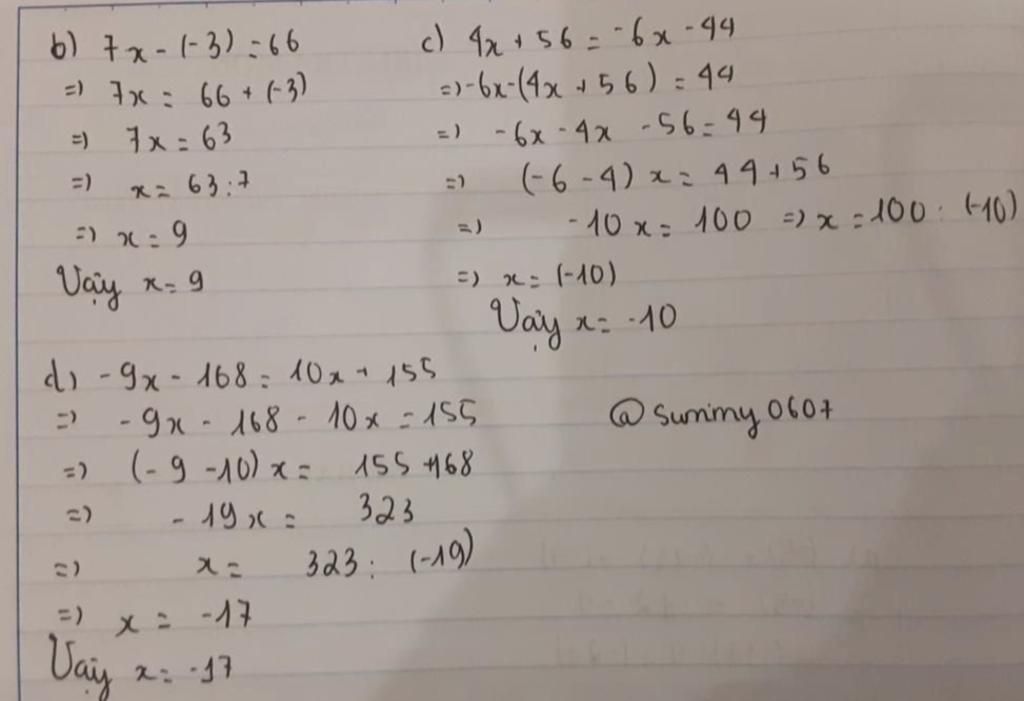 b) 7x - (-3) = 66
=) 7x = 66 + (-3)
=) 7x = 63
=) x = 63 : 7
=) x = 9
Vậy x = 9
c) 4x + 56 = -6x - 44
=) -6x - (4x + 56) = 44
=) -6x - 4x - 56 = 44
=) (-6 - 4) x = 44 + 56
=) -10x = 100 =) x = 100 : (-10)
=) x = (-10)
Vậy x = -10
d) -9x - 168 = 10x + 155
=) -9x - 168 - 10x = 155
=) (-9 - 10) x = 155 + 168
=) -19x = 323
=) x = 323 : (-19)
=) x = -17
Vậy x = -17
@sunimy0607